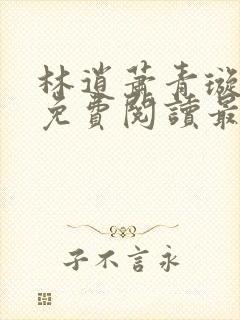 林逍蕭青璇
免費閱讀最
子不言永